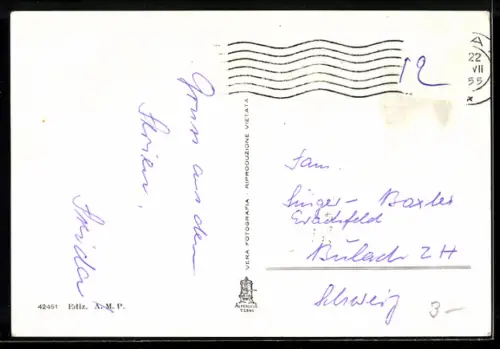 Gruss aus den
Ferien,
Frida
12
22
VII
55
Fam.
Singer-Baxter
Bülach ZH
Schweiz
3-
VERA FOTOGRAFIA - RIPRODUZIONE VIETATA
42461 Ediz. A. M. P.